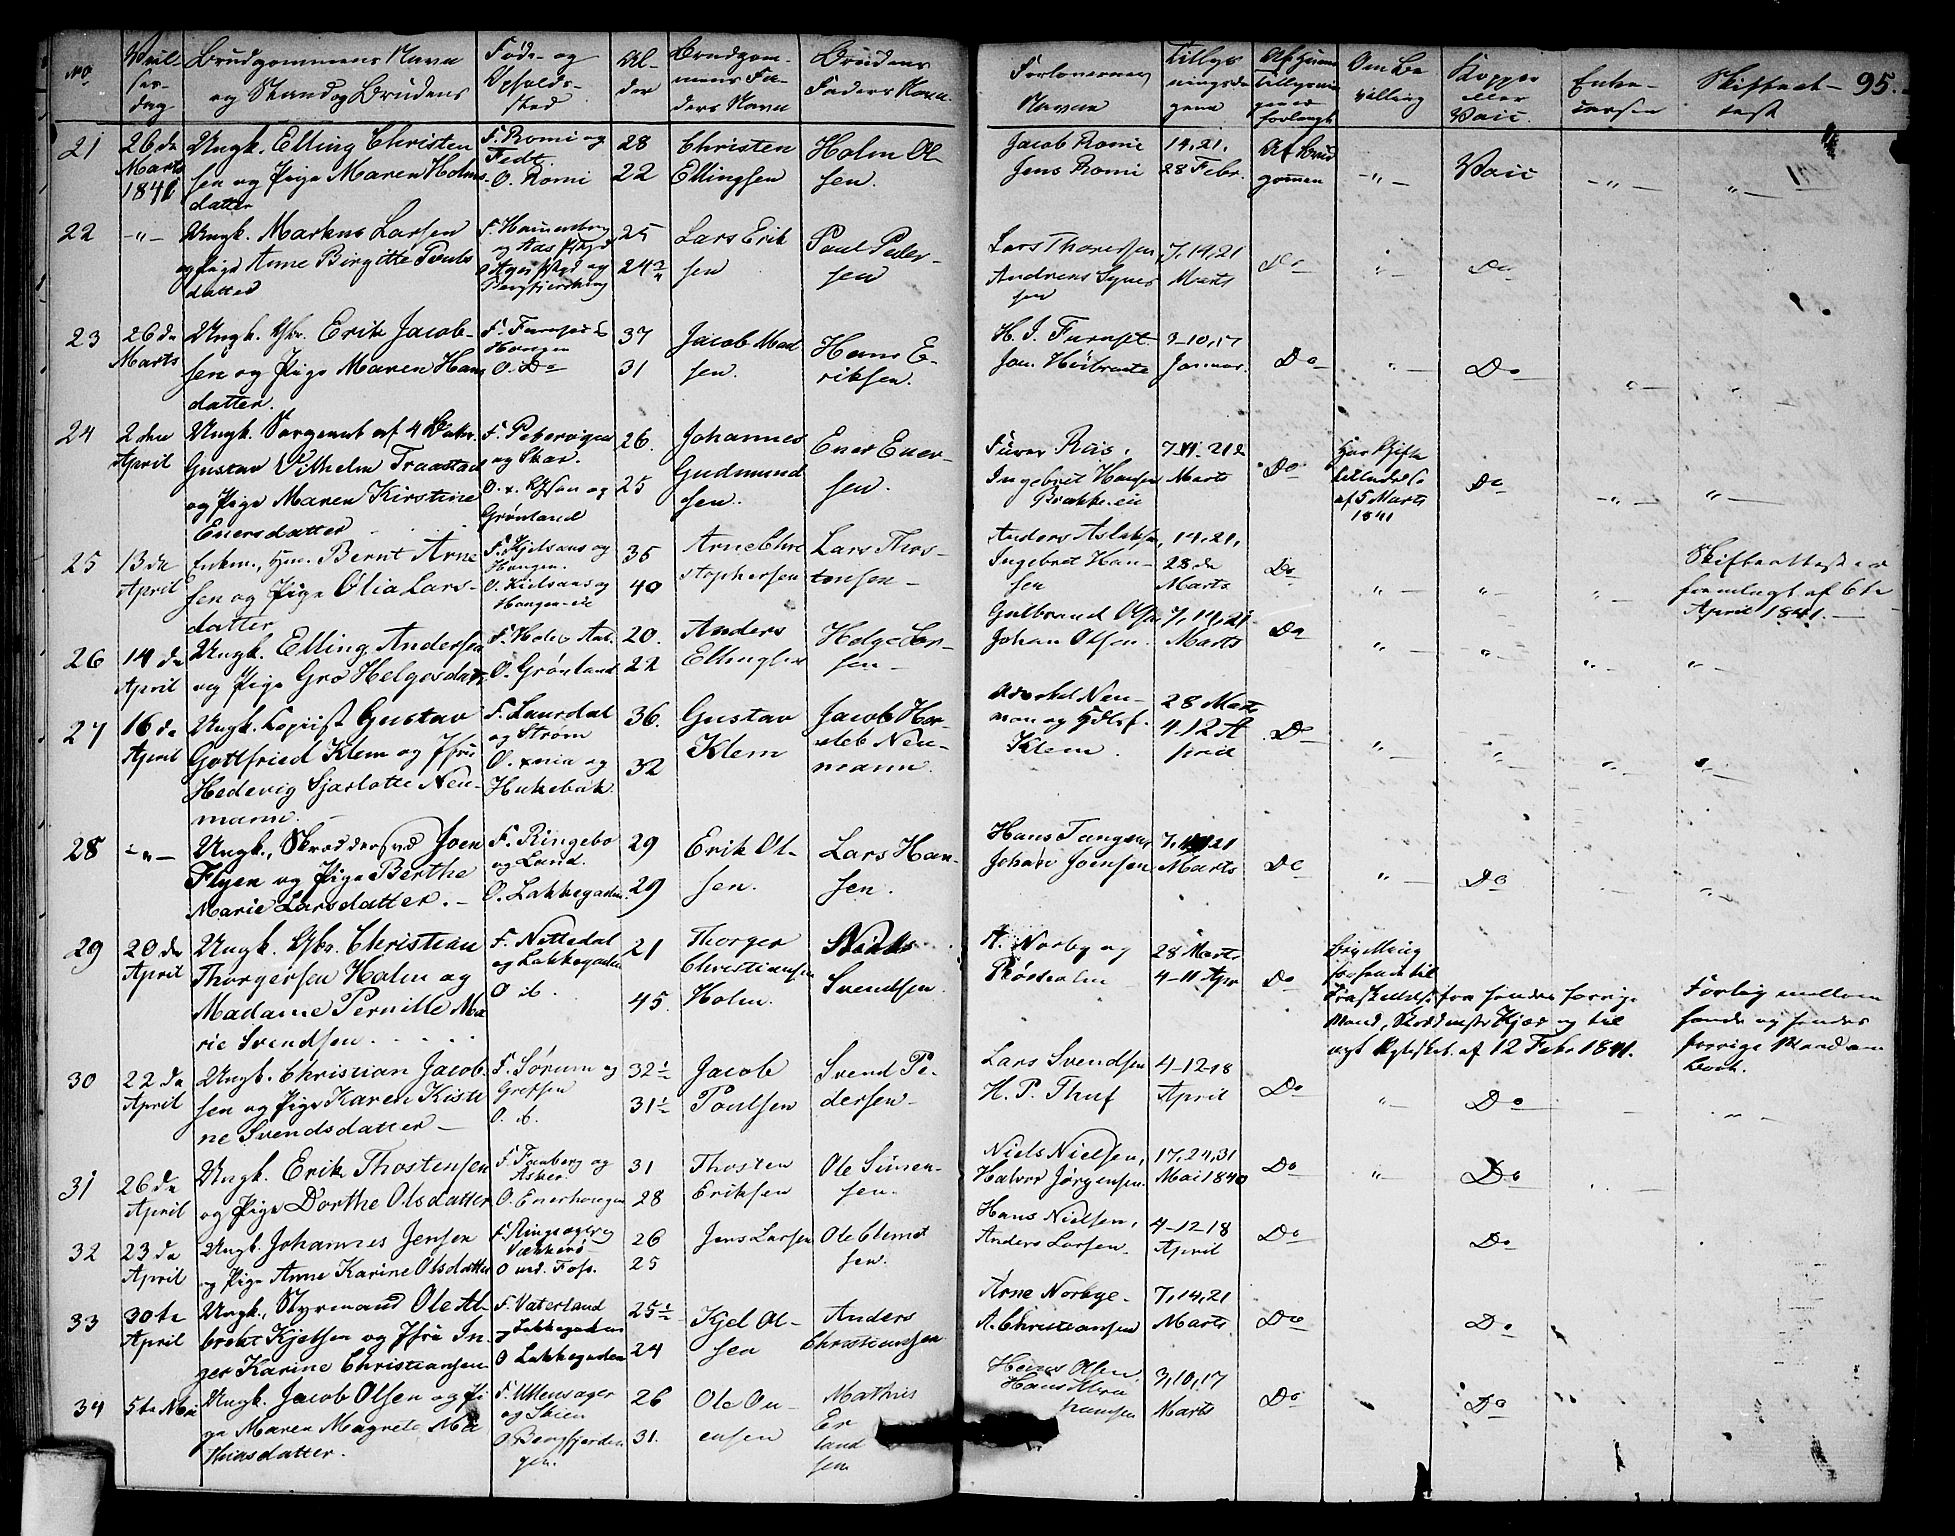 No
Viel-
ses-
dag
Brudgommens Navn
og Stand og Brudens
Føde- og
Opholds-
sted
Al-
der
Brudgom-
mens Fa-
ders Navn
Brudens
Faders Navn
Forlovernes
Navne
Tillys-
ningsda-
gene
Af hvem
Tillysnin-
gen er
forlangt
Om Be-
villing
Kopper
eller
Vacc.
Enke-
Skifteat-
test
95.
21
26de
Marts
1841
Ungk. Elling Christen
sen og Pige Maren Holms
datter
F. Romi og
Fedt.
O. Romi
28
22
Christen
Ellingsen
Holm Ol-
sen.
Jacob Romi
Jens Romi
14, 21,
28 Febr.
Af Brud
gommen
-"-
Vacc
-"-
"-
22
-"-
Ungk. Markus Larsen
og Pige Anne Birgitte Pouls
datter
25
24
Lars Erik
sen
Paul Peder-
sen
Lars Thoresen,
Andreas
sen
7, 14, 21
Marts
Do
"-
Do
23
26de
Marts
Ungk. Erik Jacob-
sen og Pige Maren Hans
datter.
O. Do
37
31
Jacob Mad
sen.
Hans E-
riksen.
H. I. Furuset
3-10, 17
Januar.
Do
"-
Do
"-
"-
24
2den
April
Ungk. Sergeant af 4
Gustav Vilhelm Traastad
og Pige Maren Kirstine
Enersdatter
F. Pebervigen
og Skar.
Grønland
26.
25
Johannes
Gudmund
sen.
Ener Ener-
sen.
Ingebret Hansen
Brække-eie
7-14-21de
Marts
Do
Har Skifte
af 5 Marts
1841
Do
-"-
"-
25
13de
April
Enkem., Bernt Arne
sen og Pige Olia Lars-
datter
F. Kjelsaas og
Haugen.
O. Kielsaas og
Haugen-eie
35
40
Arne Chri
stophersen
Lars Thos-
tensen-
Anders Aslaksen,
Ingebret Han-
sen
14, 21,
28de
Marts
Do
"-
"-
"-
Skifteattest er
fremlagt af 6te
April 1841.-
26
14de
April
Ungk. Elling Andersen
og Pige Gro Helgesdatt.
O. Grønland
20.
22
Anders
Ellingsen
Helge Lar-
sen-
Gulbrand Olsen
Johan Olsen.
7, 14, 21
Marts
Do
"-
"-
"-
"-
27
16de
April
Ungk. Kopiist Gustav
Gottfried Klem og Jfru
Hedevig Sjarlotte Neu-
mann.
F. Laurdal
og Strøm
36.
32
Gustav
Klem
Jacob Her-
sleb Neu-
mann.
Neu-
man og
Klem.
28 Marts
4-12 A
pril
Do
"-
"-
"-
"-
28
-"-
Ungk., Skrædersvd Joen
Flyen og Pige Berthe
Marie Larsdatter.-
F. Ringebo
og Land.
O. Lakkegaden.
29
29
Erik Ol-
sen.
Lars Han-
sen.
Hans Tangen,
Johan Joensen
7, 14, 21
Marts
Do
"-
Do
"-
29
20de
April
Ungk. Christian
Thorgersen Holm og
Madame Pernille Ma
rie Svendsen.
F. Nittedal
og Lakkegaden
O ib.
21
45.
Thorger
Christiansen
Holm.
Niels
Svendsen.
A. Norby og
28 Marts
4-11 Apr
Do
Bevilling
for hende til
Skilsmisse fra hendes forrige
Mand, og til
nyt Ægteskab af 12 Febr 1841.
Forlig mellem
hende og hendes
forrige Mand om
30
22de
April
Ungk. Christian Jacob
sen og Pige Karen Kisti
ne Svendsdatter-
F. Sørum og
Grefsen
O. ib.
32½
31½
Jacob
Poulsen
Svend Pe-
dersen-
Lars Svendsen
H. P. Thuf
4-12-18
April
Do
"-
Do
31
26de
April
Ungk. Erik Thostensen
og Pige Dorthe Olsdatter
Asker
O. Enerhaugen
31
28
Thosten
Eriksen
Ole Simen-
sen.
Niels Nielsen,
Halvor Jørgensen.
17, 24, 31
Mai 1840
Do
"-
Do
32
23de
April
Ungk. Johannes Jensen
og Pige Anne Karine Olsdatter
F. Ringsager og
Vækkerø
26
25
Jens Larsen
Ole Clemet
sen.
Hans Nielsen,
Anders Larsen.
4-12-18
April
Do
Do
33
30te
April
Ungk., Styrmand Ole Al-
brekt Kjelsen og Jfru In-
ger Karine Christiansen
F. Vaterland
og Lakkegaden
O Lakkegaden
25½
24
Kjel Ol-
sen
Anders
Christiansen
Arne Norbye-
A. Christiansen
7, 14, 21
Marts
Do
Do
34
5te Mai
Ungk. Jacob Olsen og Pi
ge Maren Magrete Ma
thiasdatter.
F. Ullensager
og Skien
26
31.
Ole Ou-
ensen
Mathis
Er
land
sen
Hans Olsen,
Hans Abra
hamsen
3, 10, 17
Marts
Do
Do